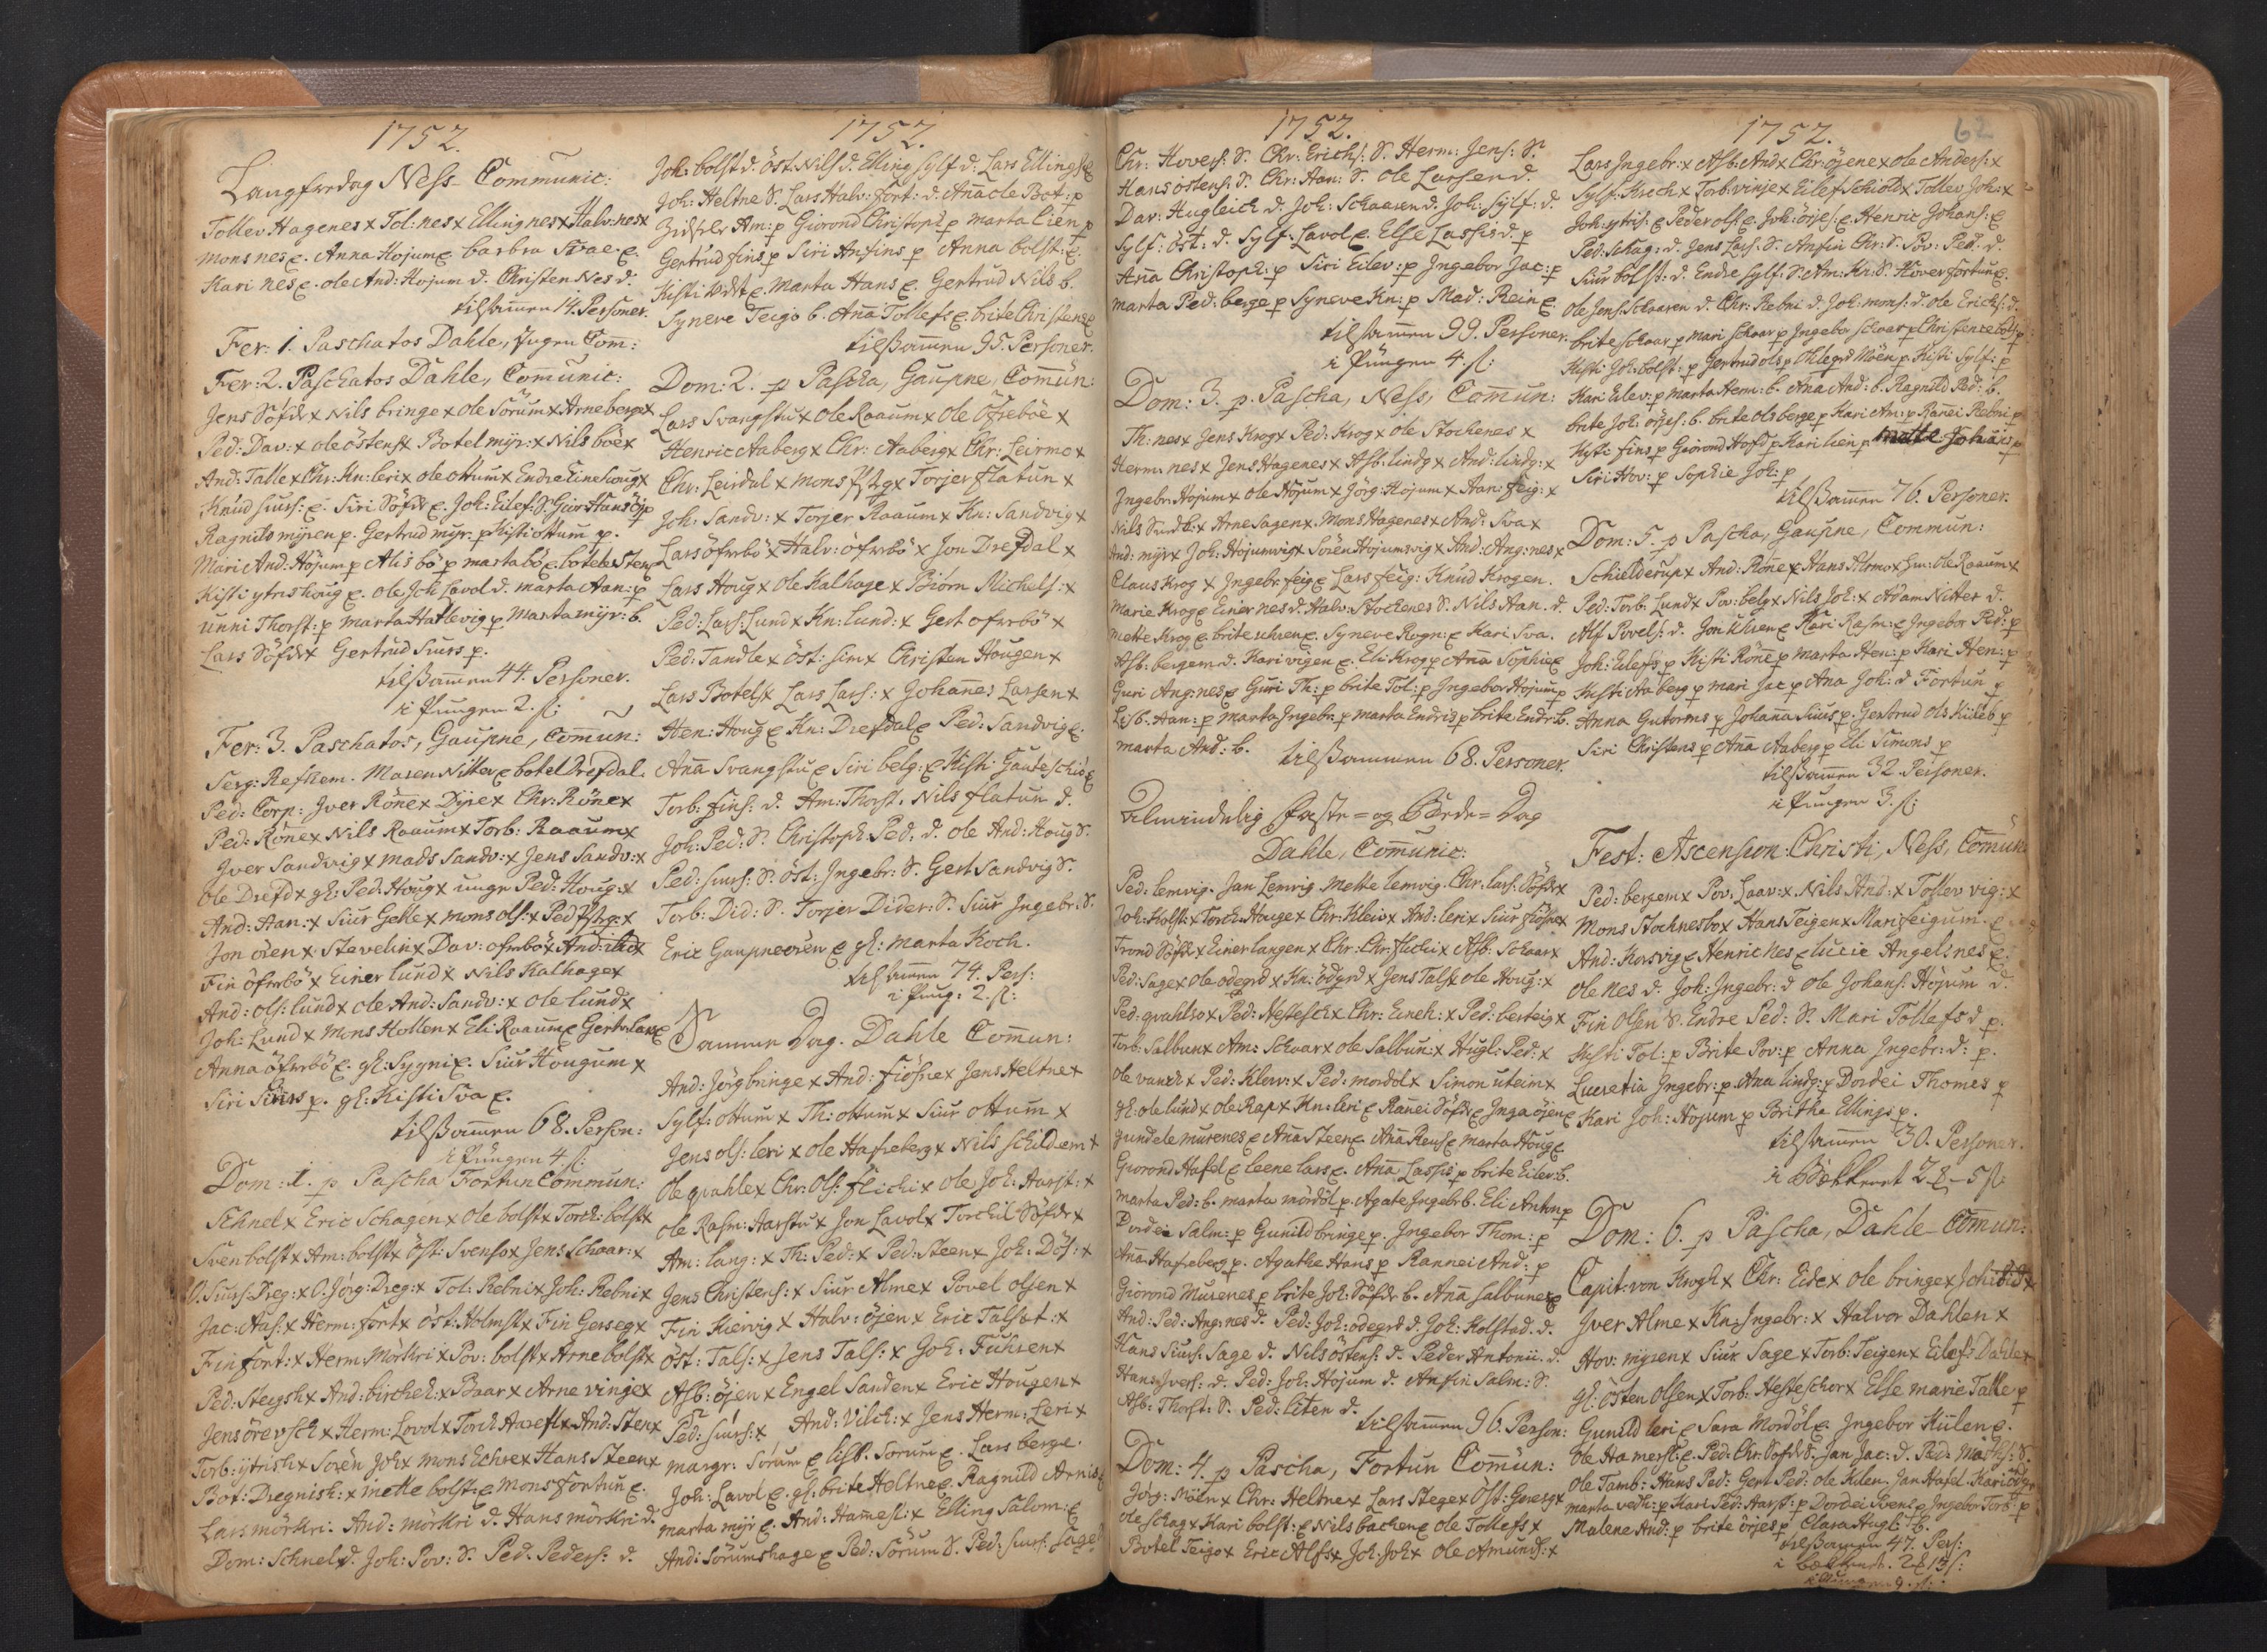 1752.
Langfredag Ness Communic:
Tollev Hagenes x Tol: nes x Elling nes x Halv: nes x
mons nes e. Anna Hojum e barbra Svae e.
Kari nes e. ole And: Hojum d. Christen Nes d.
tilsammen 14. Personer.
Fer: 1. Paschatos Dahle, Ingen Com:
Fer: 2. Paschatos Dahle, Communic:
Jens Söfde x Nils bringe x ole Sörum x Arne berge x
Ped: Dav: x ole östens x Botel myr: x Nils böe x
And: Talle x Chr: Kn: leri x ole ottum x Endre
Knud siurs: e. Siri Söfde e. Joh: Eilef: S.
Ragnild myren p. Gertrud myr: p Kisti ottum p.
Mari And: Höjum p Alis bö p marta bö e. botele Steen
Kisti ytrishoug e. ole Joh: Lavol d. marta Aan: p
unni Thorst: p marta Hattevig p Marta myr: b.
Lars Söfde x Gertrud Siurs p.
tilsammen 44. Personer.
i Pungen 2. s:
Fer: 3. Paschatos, Gaupne, Comun:
Serg: Refsnem. Maren Nitter e botel Drefdal.
Ped: Corp: Iver Röne x Dyre x Chr: Röne x
Ped: Röne x Nils Raaum x Torb: Raaum x
Iver Sandvig x mads Sandv: x Jens Sandv: x
ole Drefd x gl: Ped: Houg x unge Ped: Houg: x
And: Aan: x Siur Geke x mons ols: x Ped
Jon ören x Stavelin x Dav: ofrebö x
Fin öfrebö x Einer lund x Nils Kalhage x
And: ols: lund x ole And: Sandv: x ole lund x
Joh: Lund x Mons Hollen x Eli Raaum e Gert: Lars e
Anna öfrebö e. gl: Sygni e. Siur Hougum x
Siri Siurs p. gl: Kisti Sva e.
tilsammen 68. Person:
i Pungen 4 s:
Dom: 1. p Pascha Fortun Commun:
Schnel x Eric Schagen x ole bolst x Torch: bolst x
Sven bolst x Am: bolst x öst: Svens x Jens Schaar: x
O. Siurs: Dreg: x O. Jörg: Dreg: x Tol: Rebni x Joh: Rebni x
Jac: Aas: x Herm: fort x öst: Holmst x Fin Gerseg x
Fin fort: x Herm: Mörkri x Pov: bolst x Arne bolst x
Ped: Steigsh x And: birchel: x Baar x Arne vinje x
Jens örevsch x Herm: Lovol x And: Sten x
Torb: ytrish x Sören Joh x mons Echre x Hans Steen x
Bot: Dregnish: x mette bolst: e Mons fortun e.
Lars mörkri. And: mörkri d. Hans mörkri d.
Dom: Schnel d. Joh: Pov: S. Ped: Peders: d.
1752.
Joh: bolst d. öst: Nils d. Elling Sylf d: Lars Ellings e
Joh: Heltne S. Lars Halv: fort: d. Anna cle Bot: p
Am: p Giorond Christoph p marta Lien p
Gertrud fins p Siri Anfins p Anna bolst: e.
Kisti e. Marta Hans e. Gertrud Nils b.
Synere Teigo b. Ana Tollefs e. brite Christens e
tilsammen 95. Personer.
Dom: 2. p Pascha, Gaupne, Commun:
Lars Svangstu x ole Raaum x Ole Öfrebôe x
Henric Aaberg x Chr: Aaberg x Chr: Leirmo x
Chr: Leirdal x mons x Torjer flatun x
Joh: Sandv: x Torjer Raaum x Kn: Sandvig x
Lars öfrebö x Halv: öfrebö x Jon Drefdal x
Lars Houg x ole Kalhage x Biörn Michels: x
Ped: Lars: Lund x Kn: lund: x Gert ofrebö x
Ped: Tandle x öst: sim x Christen Hougen x
Lars Botels x Lars Lars: x Johannes Larsen x
Hen: Houg e Kn: Drefdal e Ped: Sandvig e.
Ana Svangstu e Siri belg: e Kisti Gauteschie e
Torb: fins: d. Am: Thorst. Nils flatun d.
Joh: Ped: S. Christoph Ped: d. ole And: Houg S.
Ped: Siurs: S. öst: Ingebr: S. Gert Sandvig S.
Torb: Did: S. Torjer Dider: S. Siur Ingebr: S.
Eric Gaupneören e gl: marta Koch.
tilsammen 74. Pers:
i Pung: 2. s:
Samme Dag. Dahle Comun:
And: Jörg bringe x And: fiösne x Jens Heltne x
Sylf: ottum x Th: ottum x Siur ottum x
Jens ols: leri x ole Hafseberg x Nils Schildem x
Ole qvahle x Chr: Ols: flicki x ole Joh: Aarst: x
ole Rasm: Aarstu x Jon Lavol x Torchil Söfde x
Am: lang: x Th: Ped: x Ped: Steen x Joh: Dös: x
Jens Christens: x Siur Alme x Povel olsen x
Fin Kiervig x Halv: öjen x Eric Talset: x
Öst: Tals: x Jens Tals: x Joh: Fuhren x
Asb: öjen x Engel Sanden x Eric Hougen x
Ped: Siurs: x And: Vilch: x Jens Herm: Leri x
margr: Sörum e lisb. Sorum e. Lars berge.
Joh: Lavol e. gl: brite Heltne e. Ragnild Arnis e
marta myr e. And: Hamesl: x Elling Salom: e
And: Sörumshage e Ped: Sörum S. Ped: Siurs: Sage d.
1752.
Chr: Hovers: S. Chr: Erichs: S. Herm: Jens: S.
Hans östens: S. Chr: Aan: S. ole Larsen d.
Dav: Hugleich d. Joh: Schaaren d. Joh: Sylf: d.
Sylf: öst: d. Sylf: Lavol e. Else Lassis d. p
Ana Christoph: p Siri Eilev: p Ingebor Jac: p
marta Ped: berge p Syneve Kn: p Mad: Rein e.
tilsammen 99. Personer.
i Pungen 4. s:
Dom: 3. p. Pascha, Ness, Comun:
Th: nes x Jens Krog x Ped: Krog x ole Stochenes x
Herm: nes x Jens Hagenes x Asb: lindg x And: lindg: x
Ingebr: Hojum x ole Höjum x Jörg: Hojum x Aan: feig: x
Nils x Arne Sagen x. Mons Hagenes x And: Sva x
And: myr x Joh: Höjumvig x Sören Höjumsvig x And: Ang: nes x
Claus Krog x Ingebr: feig e Lars feig: Knud Krogen.
Marie Krog e Einer nes d. Halv: Stochenes S. Nils Aan. d.
mette Krog e brite uhren e. Syneve Rogn: e Kari Sva.
Asb: bergem d. Kari vigen e. Eli Krog p Ana Sophie e
Guri Ang: nes e Guri Th: p brite Tol: p Ingebor Höjum p
Lisb. Aan: p marta Ingebr: p marta Endris p brite Endr: b.
marta And: b. tilsammen 68. Personer.
Almindelig Faste= og Bede= Dag
Dahle, Comunic:
Ped: lemvig. Jan Lemvig Mette lemvig. Chr: lars: Söfde x
Joh: Holst: x Torch: Houge x Chr: Kleiv x And: leri x Siur fiösne x
Trond Söfde x Einer langen x Chr: Chr: flicki x Asb: Schaar x
Ped: Sage x ole odegrd x Kn: ödgrd x Jens Tals x ole Houg: x
Ped: qvahls x Ped: Hestesch x Chr: Eineh: x Ped: berteig x
Torb: Salbun x Am: Schaar x ole Salbun: x Hugl: Ped: x
ole x Ped: Kleiv: x Ped: mordol x Simon uteim x
gl: ole lund x ole Rap x Kn: leri e Ranei Söfde e Inga öjen e
gundele murenes e Ana Steen e Ana Reus e marta Houg e
Giorond Hafsl e leene lars e. Ana Lassis p brite Eilev: b.
Marta Ped: b. marta mördöl p. Agate Ingebr: b. Eli Anton p
Dordei Salm: p Gunild bringe p. Ingebor Thom: p
Ana Hafseberg p. Agathe Hans p Rannei And: p
Giorond Murenes p brite Joh: Söfde b. Ana Salbunes e
And: Ped: Ang: nes d. Ped: Joh: odegrd d. Joh: Holstad. d.
Hans Siurs: Sage d. Nils östens: d. Peder Antonii. d.
Hans Ivers: d. Ped: Joh: Hojum d. Anfin Salm: S.
Asb: Thorst: S. Ped: liten d.
tilsammen 96. Person:
Dom: 4. p Pascha, Fortun Comun:
Jörg: Möen x Chr: Heltne x Lars Stege x Öst: Gerseg x
ole Schag x Kari bolst: e Nils bachen e ole Tollefs x
Botel Teigo x Eric Alfs x Joh: Joh x Ole Amunds: x
1752. 62
Lars Ingebr: x Asb: And x Chr: öjene x ole Anders: x
Sylf: Kroch x Torb: vinje x Eilef Schiold x Tollev Joh: x
Joh: ytris: e Peder ols e. Joh: örjes: e. Henric Johans: e
Ped: Schag: d. Jens Lars: S. Anfin Chr: S. Pov: Ped: d.
Siur bolst: d. Endre Sylf: S. Am: Kn: S. Hover fortun e.
Ole Jens: Schaaren d. Chr: Rebni d. Joh: mons: d. ole Erichs: d.
brite Schaar p mari Schaar p Ingebor Schaar p Christense bols p
Kisti Joh: bolst: p Gertrud ols p Ohlegrd Möen p. Kisti Sylf: p
Kari Eilev: p marta Herm: b. Ana And: b. Ragnild Ped: b.
brite Joh: örjes: b. brite Ols berge p Kari Am: p Ranei Rebni p
Kisti fins p Giörond Hofd p Kari lien p mette Johans p
Siri Hov: p Sophie Joh: p
tilsammen 76. Personer.
Dom: 5. p Pascha, Gaupne, Commun:
Schielderup x And: Röne x Hans x ole Raaum x
Ped: Torb: Lund x Pov: belg x Nils Joh: x Adam Nitter d.
Alf Povels: d. Jon Uhren e Kari Rasm: e Ingebor Ped: p
Joh: Eilefs p Kisti Röne p Marta Hen: p Kari Hen: p
Kisti Aaberg p mari Jac p Ana Joh: d Fortun p
Anna Gutorms p Johana Siurs p. Gertrud ols p
Siri Christens p Ana Aaberg p Eli Simons p
tilsammen 32. Personer.
i Pungen 3. s:
Fest: Ascension: Christi, Ness, Comun
Ped: bergem x Pov: Laav: x Nils And: x Tollev vig: x
Mons Stochnesbo x Hans Teigen x Mari feigum. e
And: Korsvig e Henric Nes e lucie Angelsnes e.
Ole nes d. Joh: Ingebr: d ole Johans: Höjum d.
Fin Olsen S. Endre Ped: S. Mari Tollefs d p.
Kisti Tol: p Brite Pov: p Anna Ingebr: d: p.
Lucretia Ingebr: p. Ana lindg: p Dordei Thomes p
Kari Joh: Hojum p Brithe Ellings p.
tilsammen 30. Personer.
i Bekkenet 2
Dom: 6. p Pascha, Dahle Comun:
Capit: von Krogh x Chr: Eide x ole bringe x
Iver Alme x Kn: Ingebr: x Halvor Dahlen x
Hov: myren x Siur Sage x Torb: Teigen x Eilef: Dahle x
gl: Östen Olsen x Torb: Hesteschor x Else marie Talle p
Gunild leri e Sara Mordöl e. Ingebor Kulen e.
ole Hamersl: e. Ped: Chr: Söfde S. Jan Jac: d. Ped: S.
ole Tamb: Hans Ped: Gert Ped: ole Kilen. Jan Hafsl. Kari
marta vedh: p Kari Ped: Aarst: p Dordei Svens p Ingebor Torb: p
Malene And: p brite örjes p Clara Hugl: b.
tilsammen 47. Pers:
i bekkenet. 2